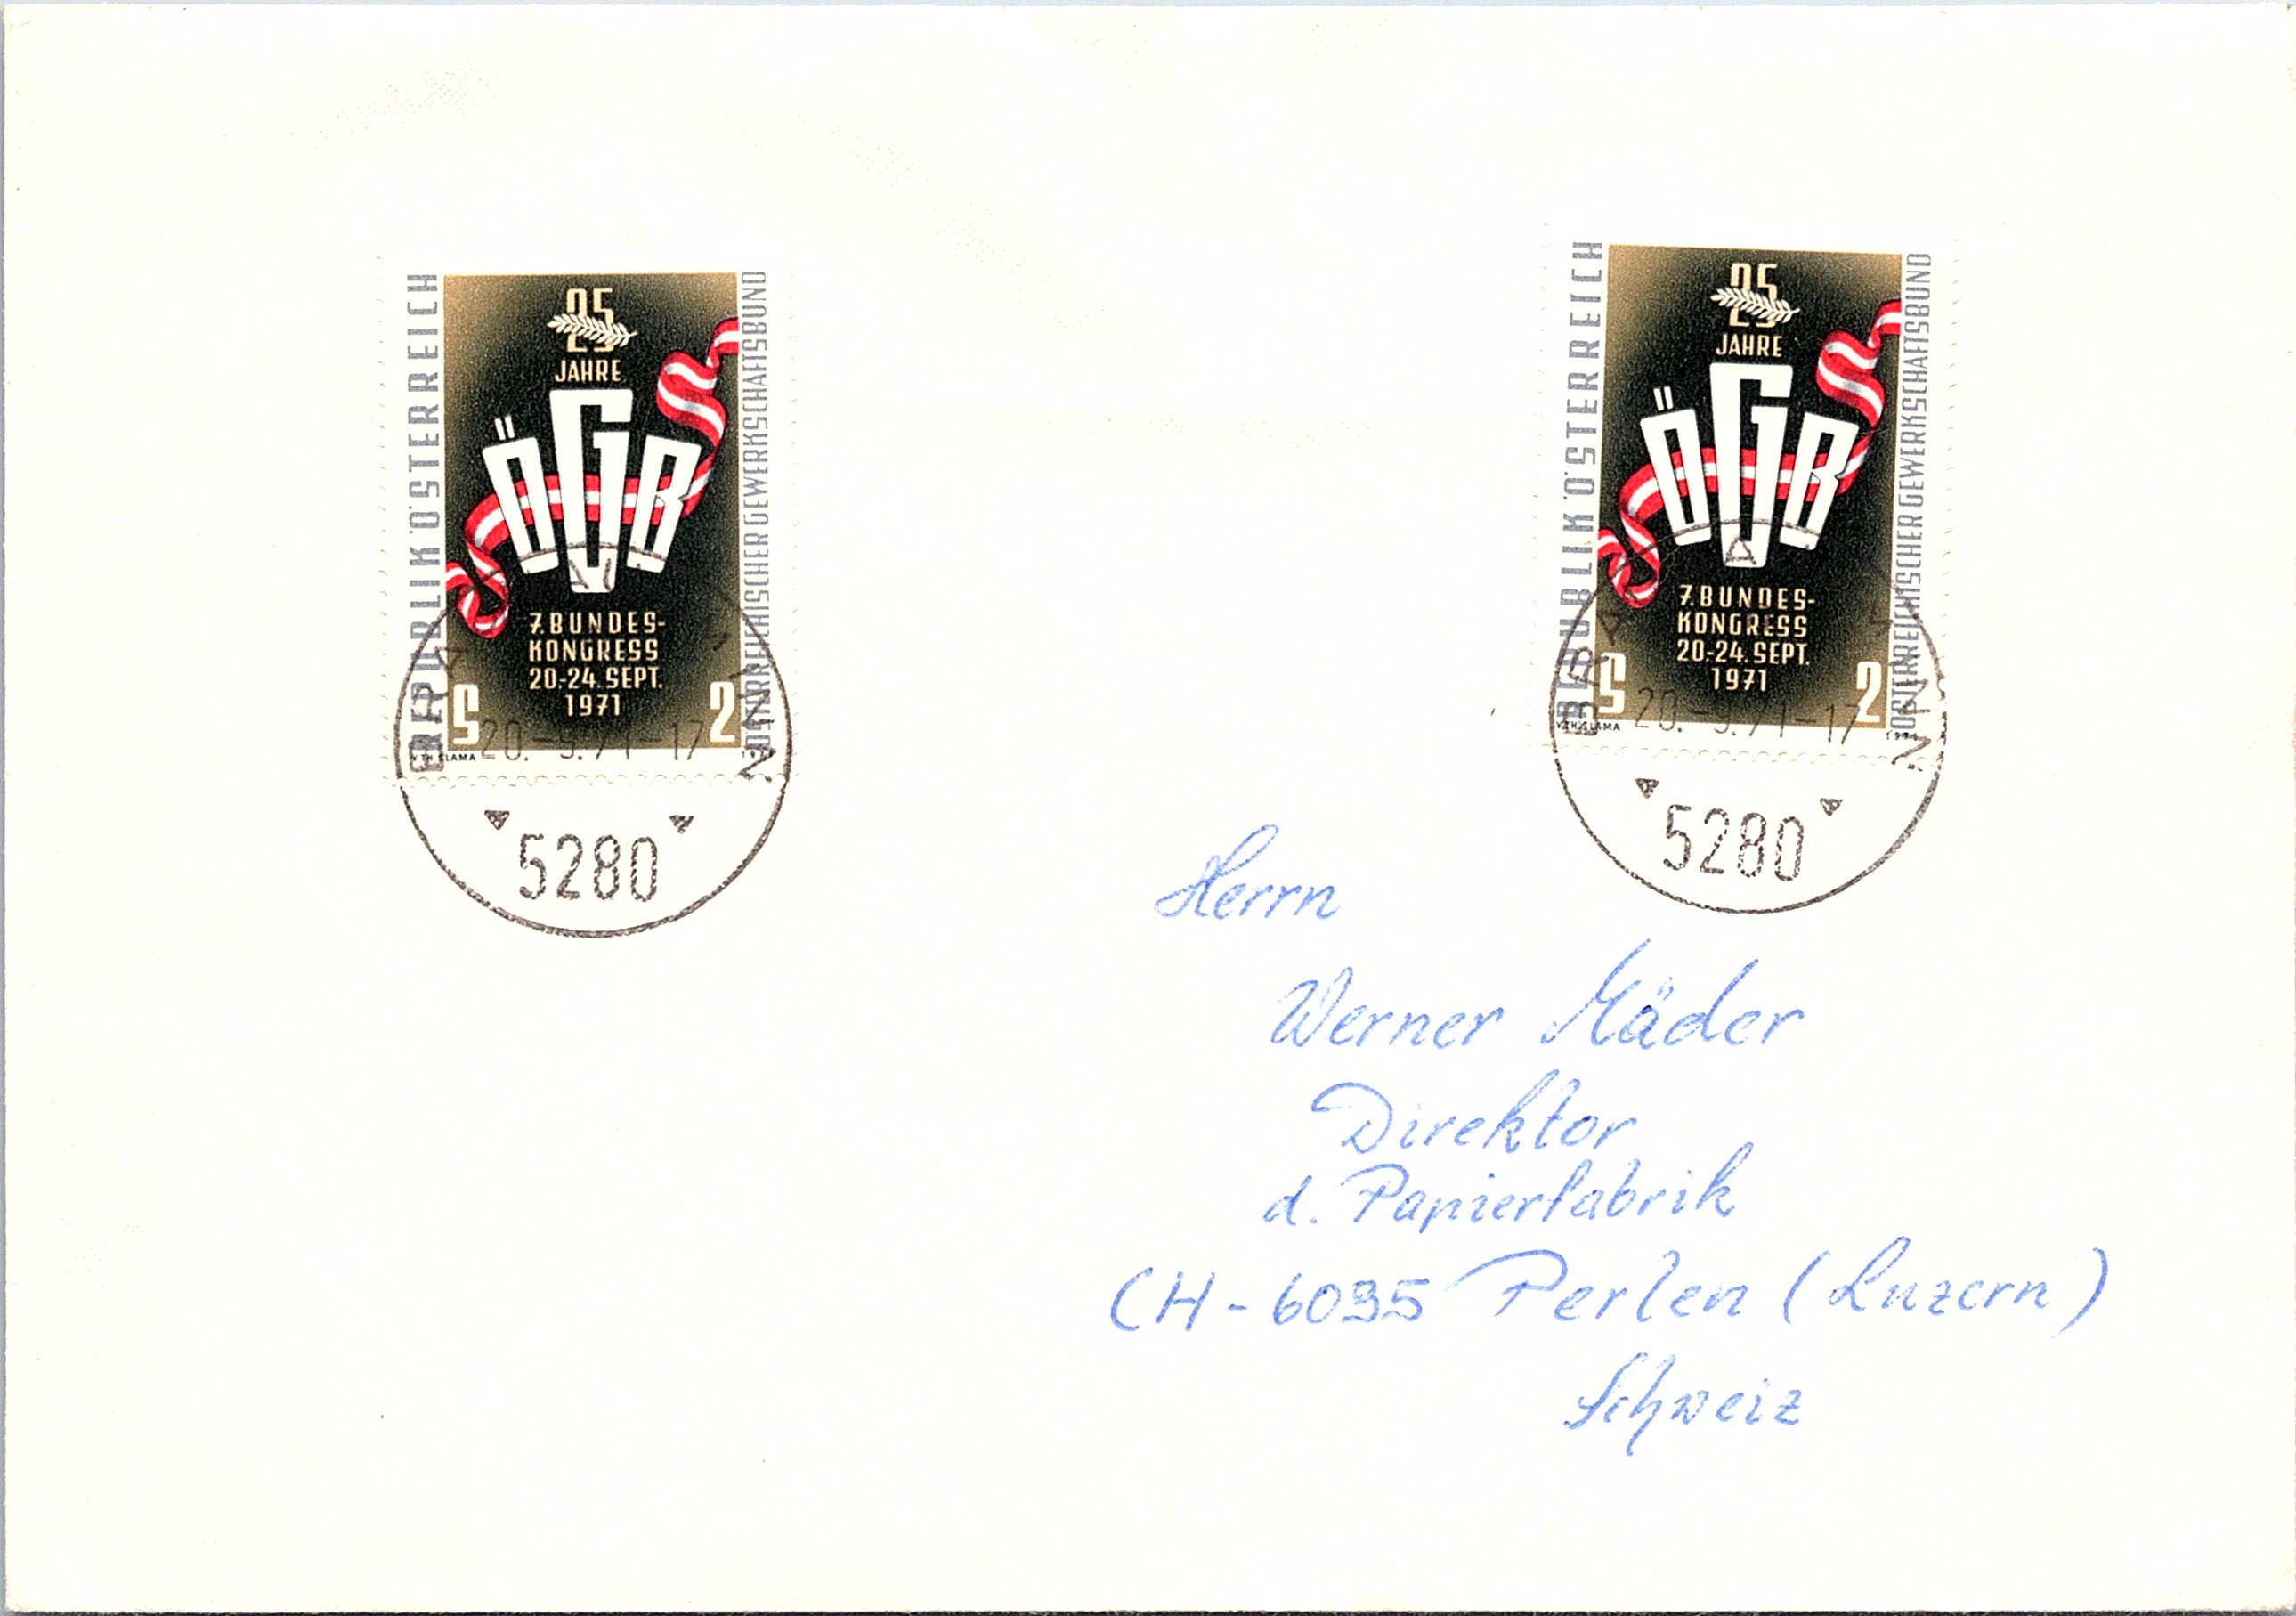 REPUBLIK ÖSTERREICH
25
JAHRE
ÖGB
7. BUNDES-
KONGRESS
20-24. SEPT.
1971
S 2
ÖSTERREICHISCHER GEWERKSCHAFTSBUND
V. TH. SLAMA
1971
20.-9.71-17
5280
REPUBLIK ÖSTERREICH
25
JAHRE
ÖGB
7. BUNDES-
KONGRESS
20-24. SEPT.
1971
S 2
ÖSTERREICHISCHER GEWERKSCHAFTSBUND
V. TH. SLAMA
1971
20.-9.71-17
5280
Herrn
Werner Mäder
Direktor
d. Papierfabrik
CH-6035 Perlen (Luzern)
Schweiz